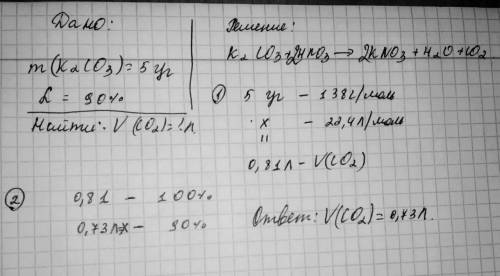 Дано:
m(K2CO3)=5гр
L = 90%
Найти: V(CO2)=?л
Решение:
K2CO3+2HNO3→2KNO3+H2O+CO2
① 5 гр - 138г/моль
x - 22,4л/моль
"
0,81л - V(CO2)
② 0,81 - 100%
0,73л=x - 90%
Ответ: V(CO2)=0,73л.